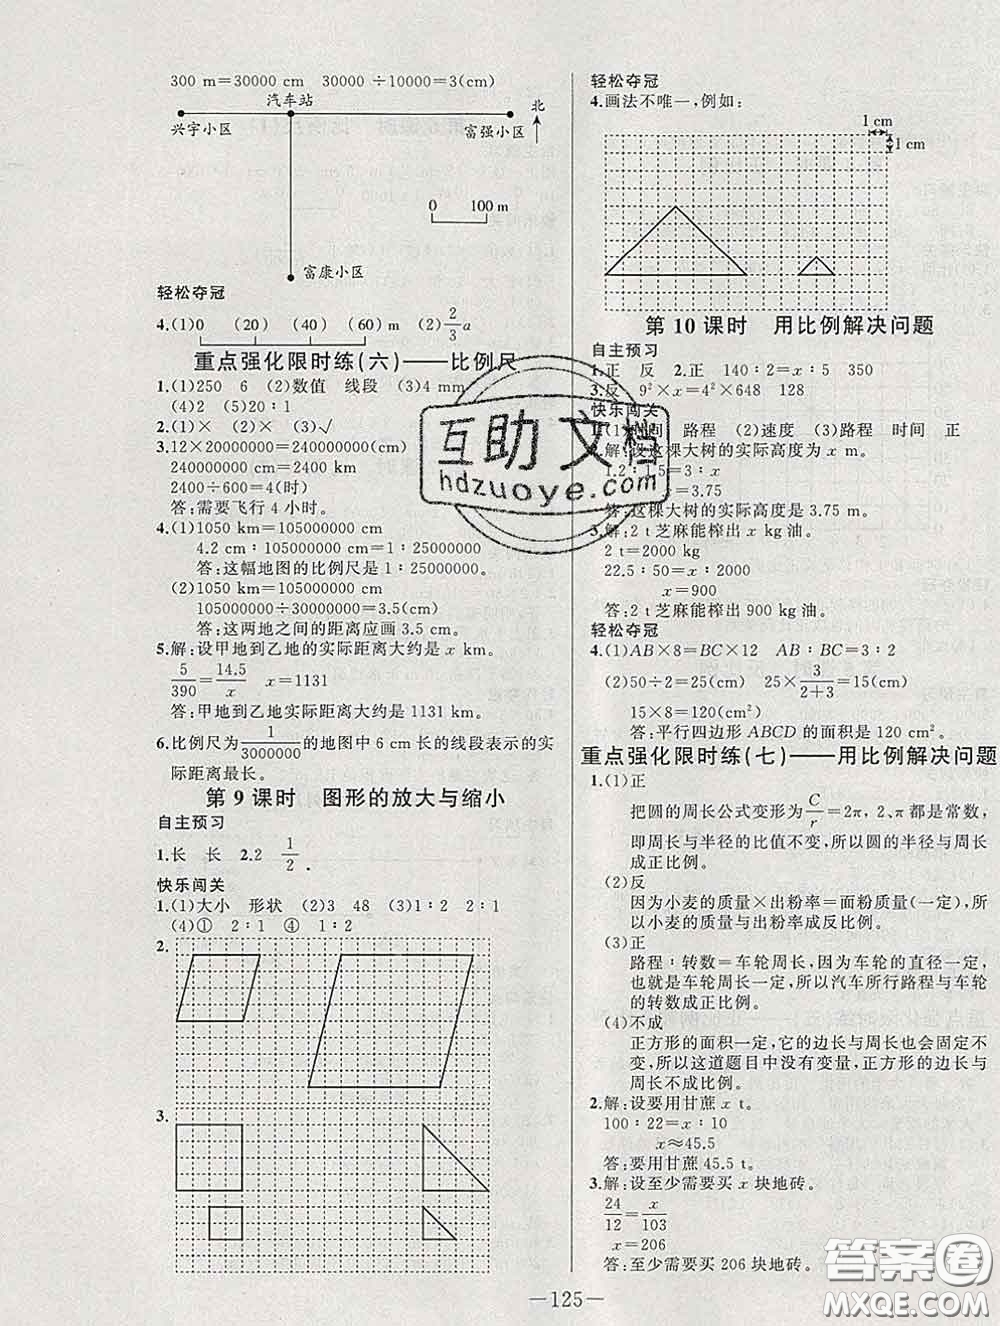 300 m=30000 cm　30000÷10000=3(cm)
汽车站
北
兴宇小区
富强小区
0　100 m
富康小区
轻松夺冠
4.(1)0　(20)　(40)　(60)m　(2)2/3 a
重点强化限时练(六)——比例尺
1.(1)250　6　(2)数值　线段　(3)4 mm
(4)2　(5)20∶1
2.(1)×　(2)×　(3)√
3.12×20000000=240000000(cm)
240000000 cm=2400 km
2400÷600=4(时)
答:需要飞行 4 小时。
4.(1)1050 km=105000000 cm
4.2 cm∶105000000 cm=1∶25000000
答:这幅地图的比例尺是 1∶25000000。
(2)1050 km=105000000 cm
105000000÷30000000=3.5(cm)
答:这两地之间的距离应画 3.5 cm。
5.解:设甲地到乙地的实际距离大约是 x km。
5/390=14.5/x　x=1131
答:甲地到乙地实际距离大约是 1131 km。
6.比例尺为1/3000000的地图中 6 cm 长的线段表示的实
际距离最长。
第 9 课时　图形的放大与缩小
自主预习
1.长　长　2.2　1/2.
快乐闯关
1.(1)大小　形状　(2)3　48　(3)1∶2　2∶1
(4)①　2∶1　④　1∶2
2.
3.
轻松夺冠
4.画法不唯一,例如:
1 cm
1 cm
第 10 课时　用比例解决问题
自主预习
1.正　反　2.正　140∶2=x∶5　350
3.反　9²×x=4²×648　128
快乐闯关
1.(1)时间　路程　(2)速度　(3)路程　时间　正
2.解:设这棵大树的实际高度为 x m。
1.2∶1.5=3∶x
x=3.75
答:这棵大树的实际高度是 3.75 m。
3.解:2 t 芝麻能榨出 x kg 油。
2 t=2000 kg
22.5∶50=x∶2000
x=900
答:2 t 芝麻能榨出 900 kg 油。
轻松夺冠
4.(1)AB×8=BC×12　AB∶BC=3∶2
(2)50÷2=25(cm)　25×3/(2+3)=15(cm)
15×8=120(cm²)
答:平行四边形 ABCD 的面积是 120 cm²。
重点强化限时练(七)——用比例解决问题
1.(1)正
把圆的周长公式变形为C/r=2π, 2、π 都是常数,
即周长与半径的比值不变,所以圆的半径与周长
成正比例。
(2)反
因为小麦的质量×出粉率=面粉质量(一定),所
以小麦的质量与出粉率成反比例。
(3)正
路程∶转数=车轮周长,因为车轮的直径一定,
也就是车轮周长一定,所以汽车所行路程与车轮
的转数成正比例。
(4)不成
正方形的面积一定,它的边长与周长也会固定不
变,所以这道题目中没有变量,正方形的边长与
周长不成比例。
2.解:设要用甘蔗 x t。
100∶22=x∶10
x≈45.5
答:要用甘蔗 45.5 t。
3.解:设至少需要买 x 块地砖。
24/12=x/103
x=206
答:至少需要买 206 块地砖。
—125—
互助文档
hdzuoye.com
答案圈
MXQE.COM